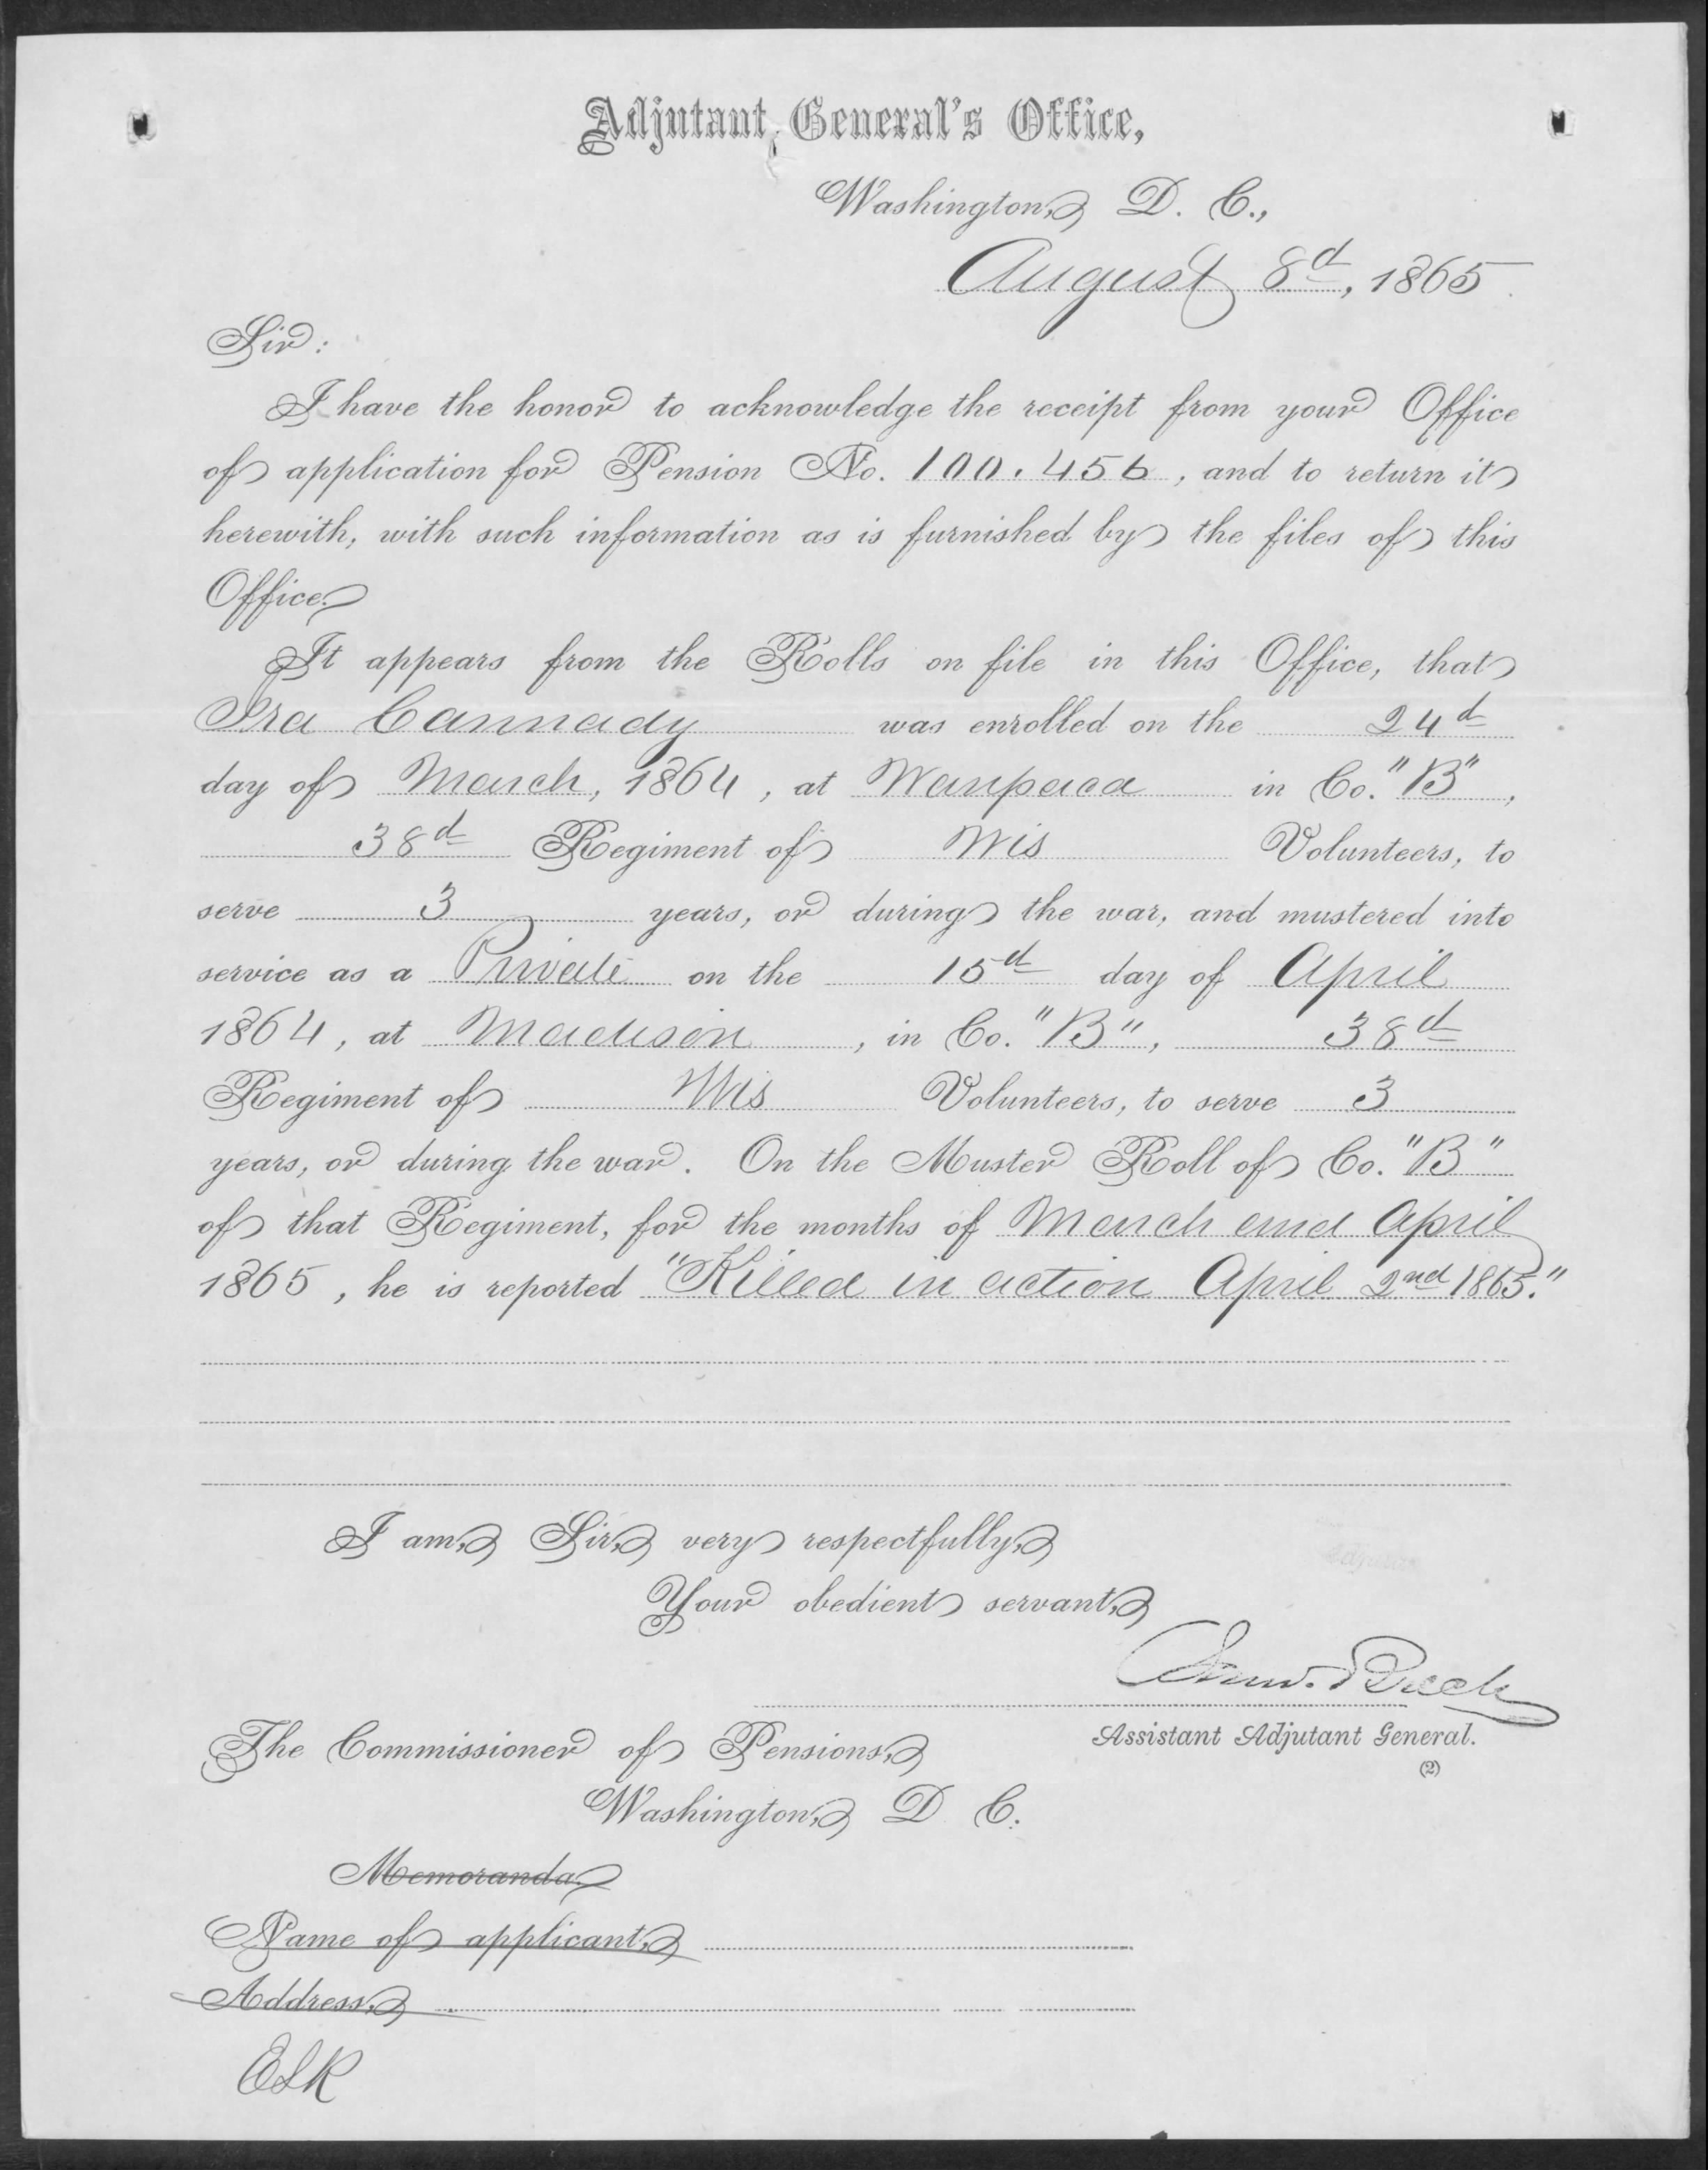 Adjutant General's Office,
Washington, D. C.,
August 8d, 1865
Sir:
I have the honor to acknowledge the receipt from your Office
of application for Pension No. 100.456, and to return it
herewith, with such information as is furnished by the files of this
Office.
It appears from the Rolls on file in this Office, that
Ira Cannady was enrolled on the 24d
day of March, 1864, at Waupaca in Co. "B",
38d Regiment of Wis Volunteers, to
serve 3 years, or during the war, and mustered into
service as a Private on the 15d day of April
1864, at Madison, in Co. "B", 38d
Regiment of Wis Volunteers, to serve 3
years, or during the war. On the Muster Roll of Co. "B"
of that Regiment, for the months of March and April
1865, he is reported "Killed in action April 2nd 1865."
I am, Sir, very respectfully,
Your obedient servant,
Breck
Assistant Adjutant General.
(2)
The Commissioner of Pensions,
Washington, D C.
Memoranda.
Name of applicant,
Address,
ELR